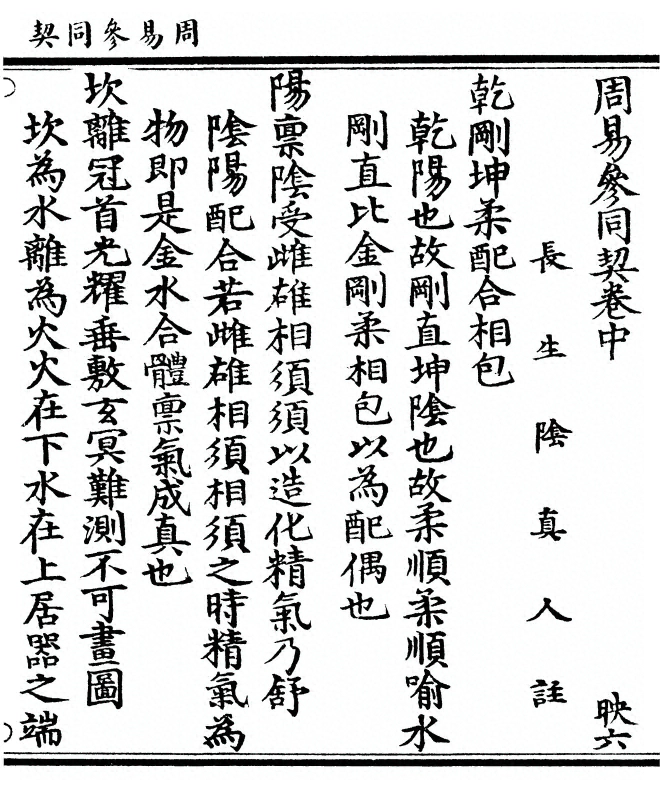 周易參同契
周易參同契卷中
映六
長生陰真人註
乾剛坤柔配合相包
乾陽也故剛直坤陰也故柔順柔順喻水
剛直比金剛柔相包以為配偶也
陽禀陰受雌雄相須須以造化精氣乃舒
陰陽配合若雌雄相須相須之時精氣為
物即是金水合體禀氣成真也
坎離冠首光耀垂敷玄冥難測不可畫圖
坎為水離為火火在下水在上居器之端